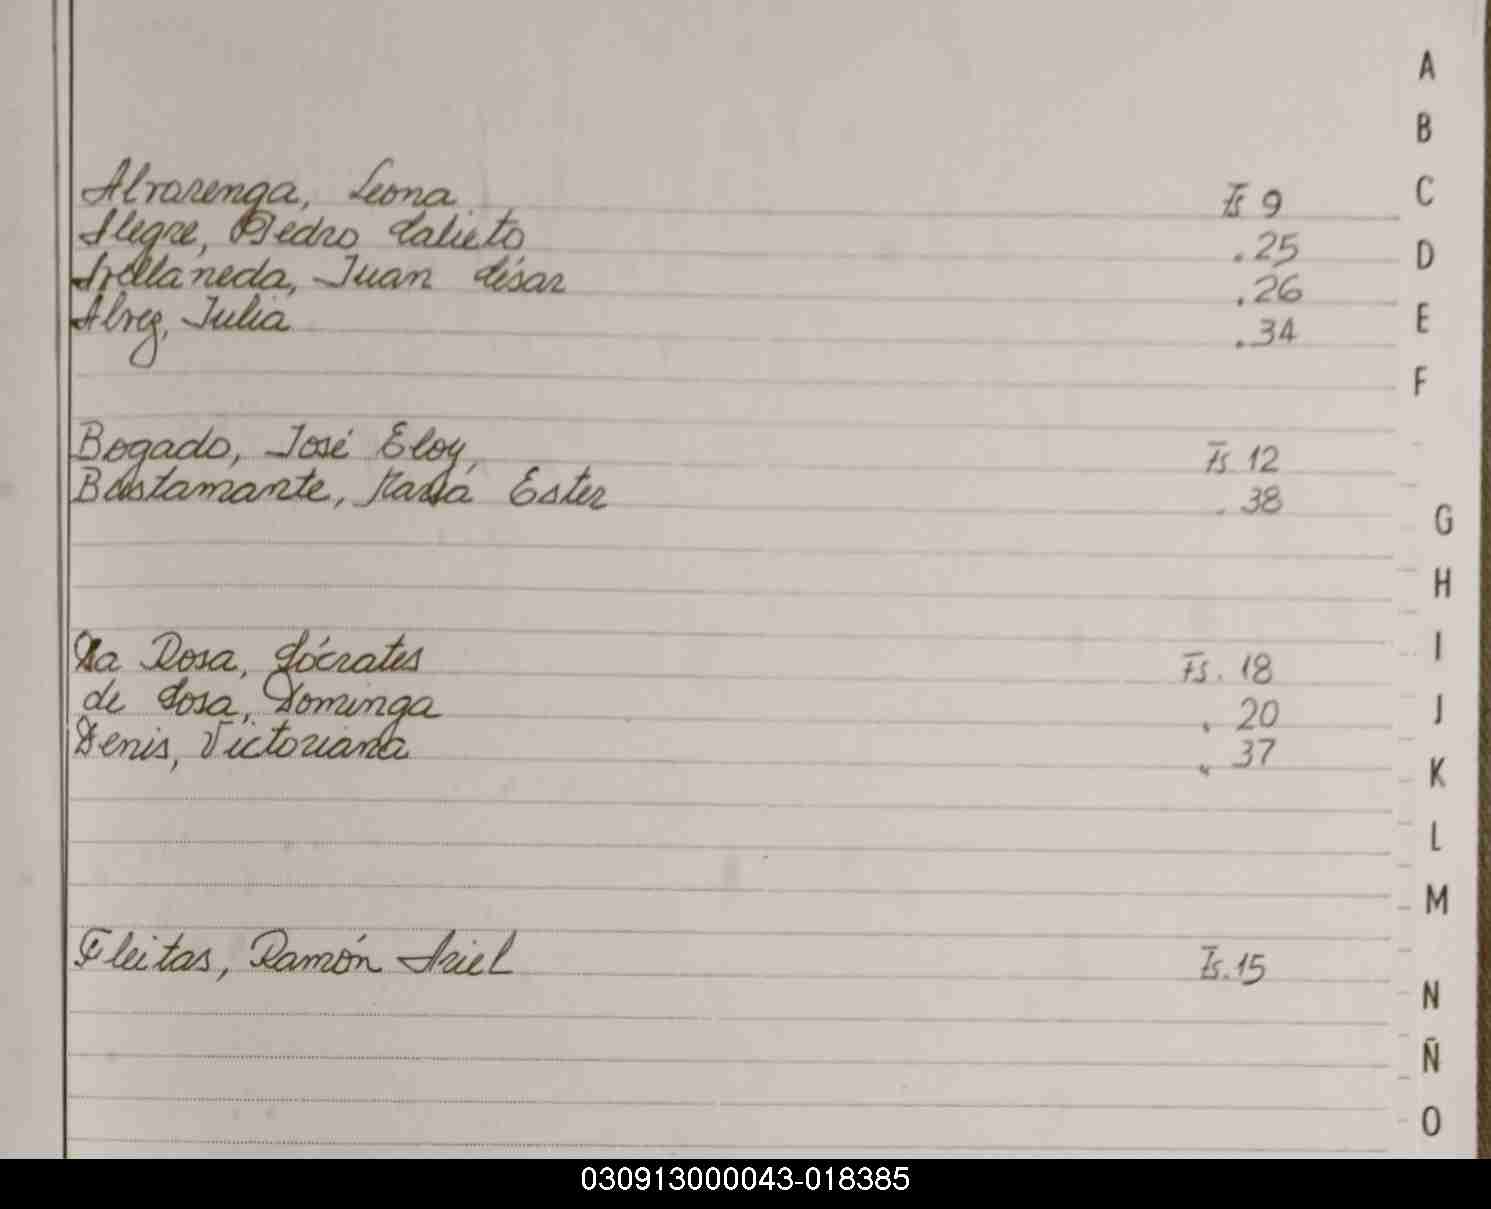 Alvarenga, Leona Fs 9
Alegre, Pedro Calixto . 25
Avellaneda, Juan César . 26
Alvez, Julia . 34
Bogado, José Eloy, Fs. 12
Bustamante, María Ester . 38
Da Rosa, Sócrates Fs. 18
de Sosa, Dominga . 20
Denis, Victoriana " 37
Fleitas, Ramón Ariel Fs. 15
A
B
C
D
E
F
G
H
I
J
K
L
M
N
Ñ
O
030913000043-018385